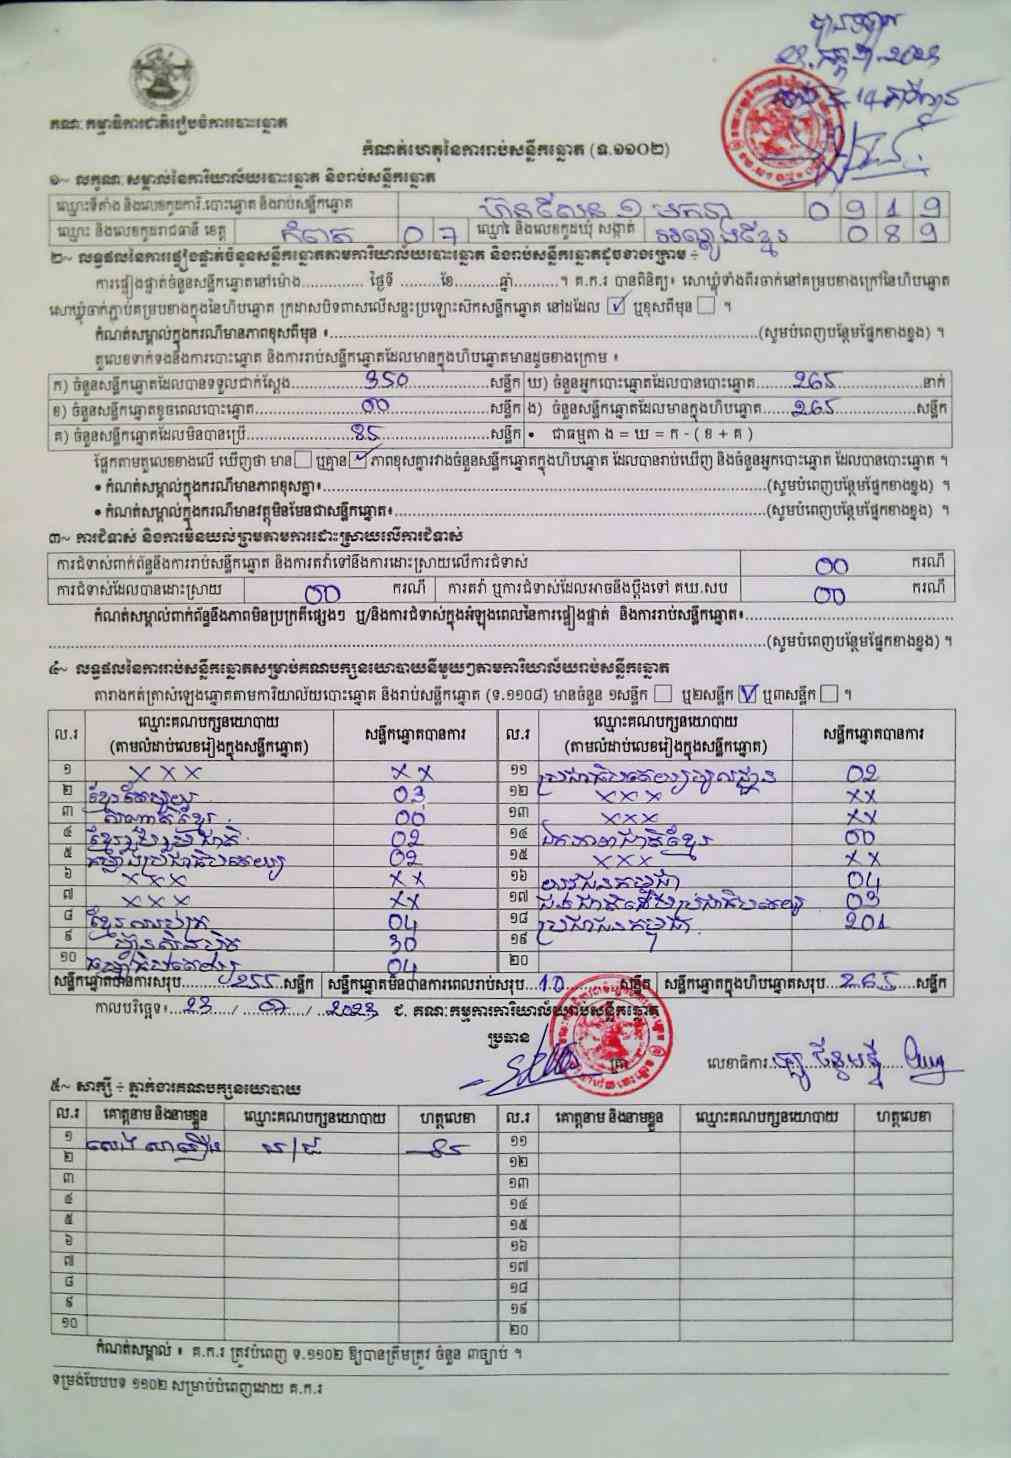 គណៈកម្មាធិការជាតិរៀបចំការបោះឆ្នោត
កំណត់ហេតុនៃការរាប់សន្លឹកឆ្នោត (ទ.១១០២)
១~ លក្ខណៈសម្គាល់នៃការិយាល័យបោះឆ្នោត និងរាប់សន្លឹកឆ្នោត
ឈ្មោះទីតាំង និងលេខកូដការិ.បោះឆ្នោត និងរាប់សន្លឹកឆ្នោត 0 9 1 9
ឈ្មោះ និងលេខកូដរាជធានី ខេត្ត កំពត 0 7 ឈ្មោះ និងលេខកូដឃុំ សង្កាត់ 0 8 9
២~ លទ្ធផលនៃការផ្ទៀងផ្ទាត់ចំនួនសន្លឹកឆ្នោតតាមការិយាល័យបោះឆ្នោត និងរាប់សន្លឹកឆ្នោតដូចខាងក្រោម ÷
ការផ្ទៀងផ្ទាត់ចំនួនសន្លឹកឆ្នោតនៅម៉ោង.............. ថ្ងៃទី .........ខែ..........ឆ្នាំ..........។ គ.ក.រ បានពិនិត្យ៖ សោឃ្លុំទាំងពីរចាក់នៅគម្របខាងក្រៅនៃហិបឆ្នោត
សោឃ្លុំចាក់ភ្ជាប់គម្របខាងក្នុងនៃហិបឆ្នោត ក្រដាសបិទពាសលើសន្ទះប្រឡោះសិកសន្លឹកឆ្នោត នៅដដែល ☑ ឬខុសពីមុន ☐ ។
កំណត់សម្គាល់ក្នុងករណីមានភាពខុសពីមុន ៖..........(សូមបំពេញបន្ថែមផ្នែកខាងខ្នង) ។
តួលេខទាក់ទងនឹងការបោះឆ្នោត និងការរាប់សន្លឹកឆ្នោតដែលមានក្នុងហិបឆ្នោតមានដូចខាងក្រោម ៖
ក) ចំនួនសន្លឹកឆ្នោតដែលបានទទួលជាក់ស្តែង..........350..........សន្លឹក ឃ) ចំនួនអ្នកបោះឆ្នោតដែលបានបោះឆ្នោត........265..........នាក់
ខ) ចំនួនសន្លឹកឆ្នោតខូចពេលបោះឆ្នោត..........00..........សន្លឹក ង) ចំនួនសន្លឹកឆ្នោតដែលមានក្នុងហិបឆ្នោត......265..........សន្លឹក
គ) ចំនួនសន្លឹកឆ្នោតដែលមិនបានប្រើ..........85..........សន្លឹក • ជាធម្មតា ង = ឃ = ក - ( ខ + គ )
ផ្អែកតាមតួលេខខាងលើ ឃើញថា មាន ☐ ឬគ្មាន ☑ ភាពខុសគ្នារវាងចំនួនសន្លឹកឆ្នោតក្នុងហិបឆ្នោត ដែលបានរាប់ឃើញ និងចំនួនអ្នកបោះឆ្នោត ដែលបានបោះឆ្នោត ។
• កំណត់សម្គាល់ក្នុងករណីមានភាពខុសគ្នា៖..........(សូមបំពេញបន្ថែមផ្នែកខាងខ្នង) ។
• កំណត់សម្គាល់ក្នុងករណីមានវត្ថុមិនមែនជាសន្លឹកឆ្នោត៖..........(សូមបំពេញបន្ថែមផ្នែកខាងខ្នង) ។
៣~ ការជំទាស់ និងការមិនយល់ព្រមតាមការដោះស្រាយលើការជំទាស់
ការជំទាស់ពាក់ព័ន្ធនឹងការរាប់សន្លឹកឆ្នោត និងការតវ៉ាទៅនឹងការដោះស្រាយលើការជំទាស់ 00 ករណី
ការជំទាស់ដែលបានដោះស្រាយ 00 ករណី ការតវ៉ា ឬការជំទាស់ដែលអាចនឹងប្តឹងទៅ គឃ.សប 00 ករណី
កំណត់សម្គាល់ពាក់ព័ន្ធនឹងភាពមិនប្រក្រតីផ្សេងៗ ឬ/និងការជំទាស់ក្នុងអំឡុងពេលនៃការផ្ទៀងផ្ទាត់ និងការរាប់សន្លឹកឆ្នោត៖..........
..........(សូមបំពេញបន្ថែមផ្នែកខាងខ្នង) ។
៤~ លទ្ធផលនៃការរាប់សន្លឹកឆ្នោតសម្រាប់គណបក្សនយោបាយនីមួយៗតាមការិយាល័យរាប់សន្លឹកឆ្នោត
តារាងកត់ត្រាសំឡេងឆ្នោតតាមការិយាល័យបោះឆ្នោត និងរាប់សន្លឹកឆ្នោត (ទ.១១០៨) មានចំនួន ១សន្លឹក ☐ ឬ២សន្លឹក ☑ ឬ៣សន្លឹក ☐ ។
ល.រ ឈ្មោះគណបក្សនយោបាយ (តាមលំដាប់លេខរៀងក្នុងសន្លឹកឆ្នោត) សន្លឹកឆ្នោតបានការ ល.រ ឈ្មោះគណបក្សនយោបាយ (តាមលំដាប់លេខរៀងក្នុងសន្លឹកឆ្នោត) សន្លឹកឆ្នោតបានការ
១ XXX XX ១១ ប្រជាធិបតេយ្យមូលដ្ឋាន 02
២ 03 ១២ XXX XX
៣ 00 ១៣ XXX XX
៤ ខ្មែររួបរួមជាតិ 02 ១៤ ឯកភាពជាតិខ្មែរ 00
៥ កម្លាំងប្រជាធិបតេយ្យ 02 ១៥ XXX XX
៦ XXX XX ១៦ យុវជនកម្ពុជា 04
៧ XXX XX ១៧ 03
៨ ខ្មែរ 04 ១៨ ប្រជាជនកម្ពុជា 201
៩ ហ្វ៊ុនស៊ិនប៉ិច 30 ១៩
១០ 04 ២០
សន្លឹកឆ្នោតបានការសរុប..........255.....សន្លឹក សន្លឹកឆ្នោតមិនបានការពេលរាប់សរុប...10..........សន្លឹក សន្លឹកឆ្នោតក្នុងហិបឆ្នោតសរុប...265.....សន្លឹក
កាលបរិច្ឆេទ៖...23...../...07..../...2023 ជ. គណៈកម្មការការិយាល័យរាប់សន្លឹកឆ្នោត
ប្រធាន
លេខាធិការ
៥~ សាក្សី ÷ ភ្នាក់ងារគណបក្សនយោបាយ
ល.រ គោត្តនាម និងនាមខ្លួន ឈ្មោះគណបក្សនយោបាយ ហត្ថលេខា ល.រ គោត្តនាម និងនាមខ្លួន ឈ្មោះគណបក្សនយោបាយ ហត្ថលេខា
១ ១១
២ ១២
៣ ១៣
៤ ១៤
៥ ១៥
៦ ១៦
៧ ១៧
៨ ១៨
៩ ១៩
១០ ២០
កំណត់សម្គាល់ ៖ គ.ក.រ ត្រូវបំពេញ ទ.១១០២ ឱ្យបានត្រឹមត្រូវ ចំនួន ៣ច្បាប់ ។
ទម្រង់បែបបទ ១១០២ សម្រាប់បំពេញដោយ គ.ក.រ